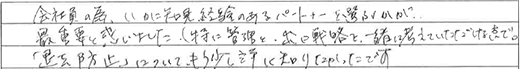 会社員の為、いかに知見経験のあるパートナーを選るかが、
最重要と思いました。(特に管理と、出口戦略と、一緒に考えていただける点で。
「悪天防止」について、もう少し詳しく知りたかったです